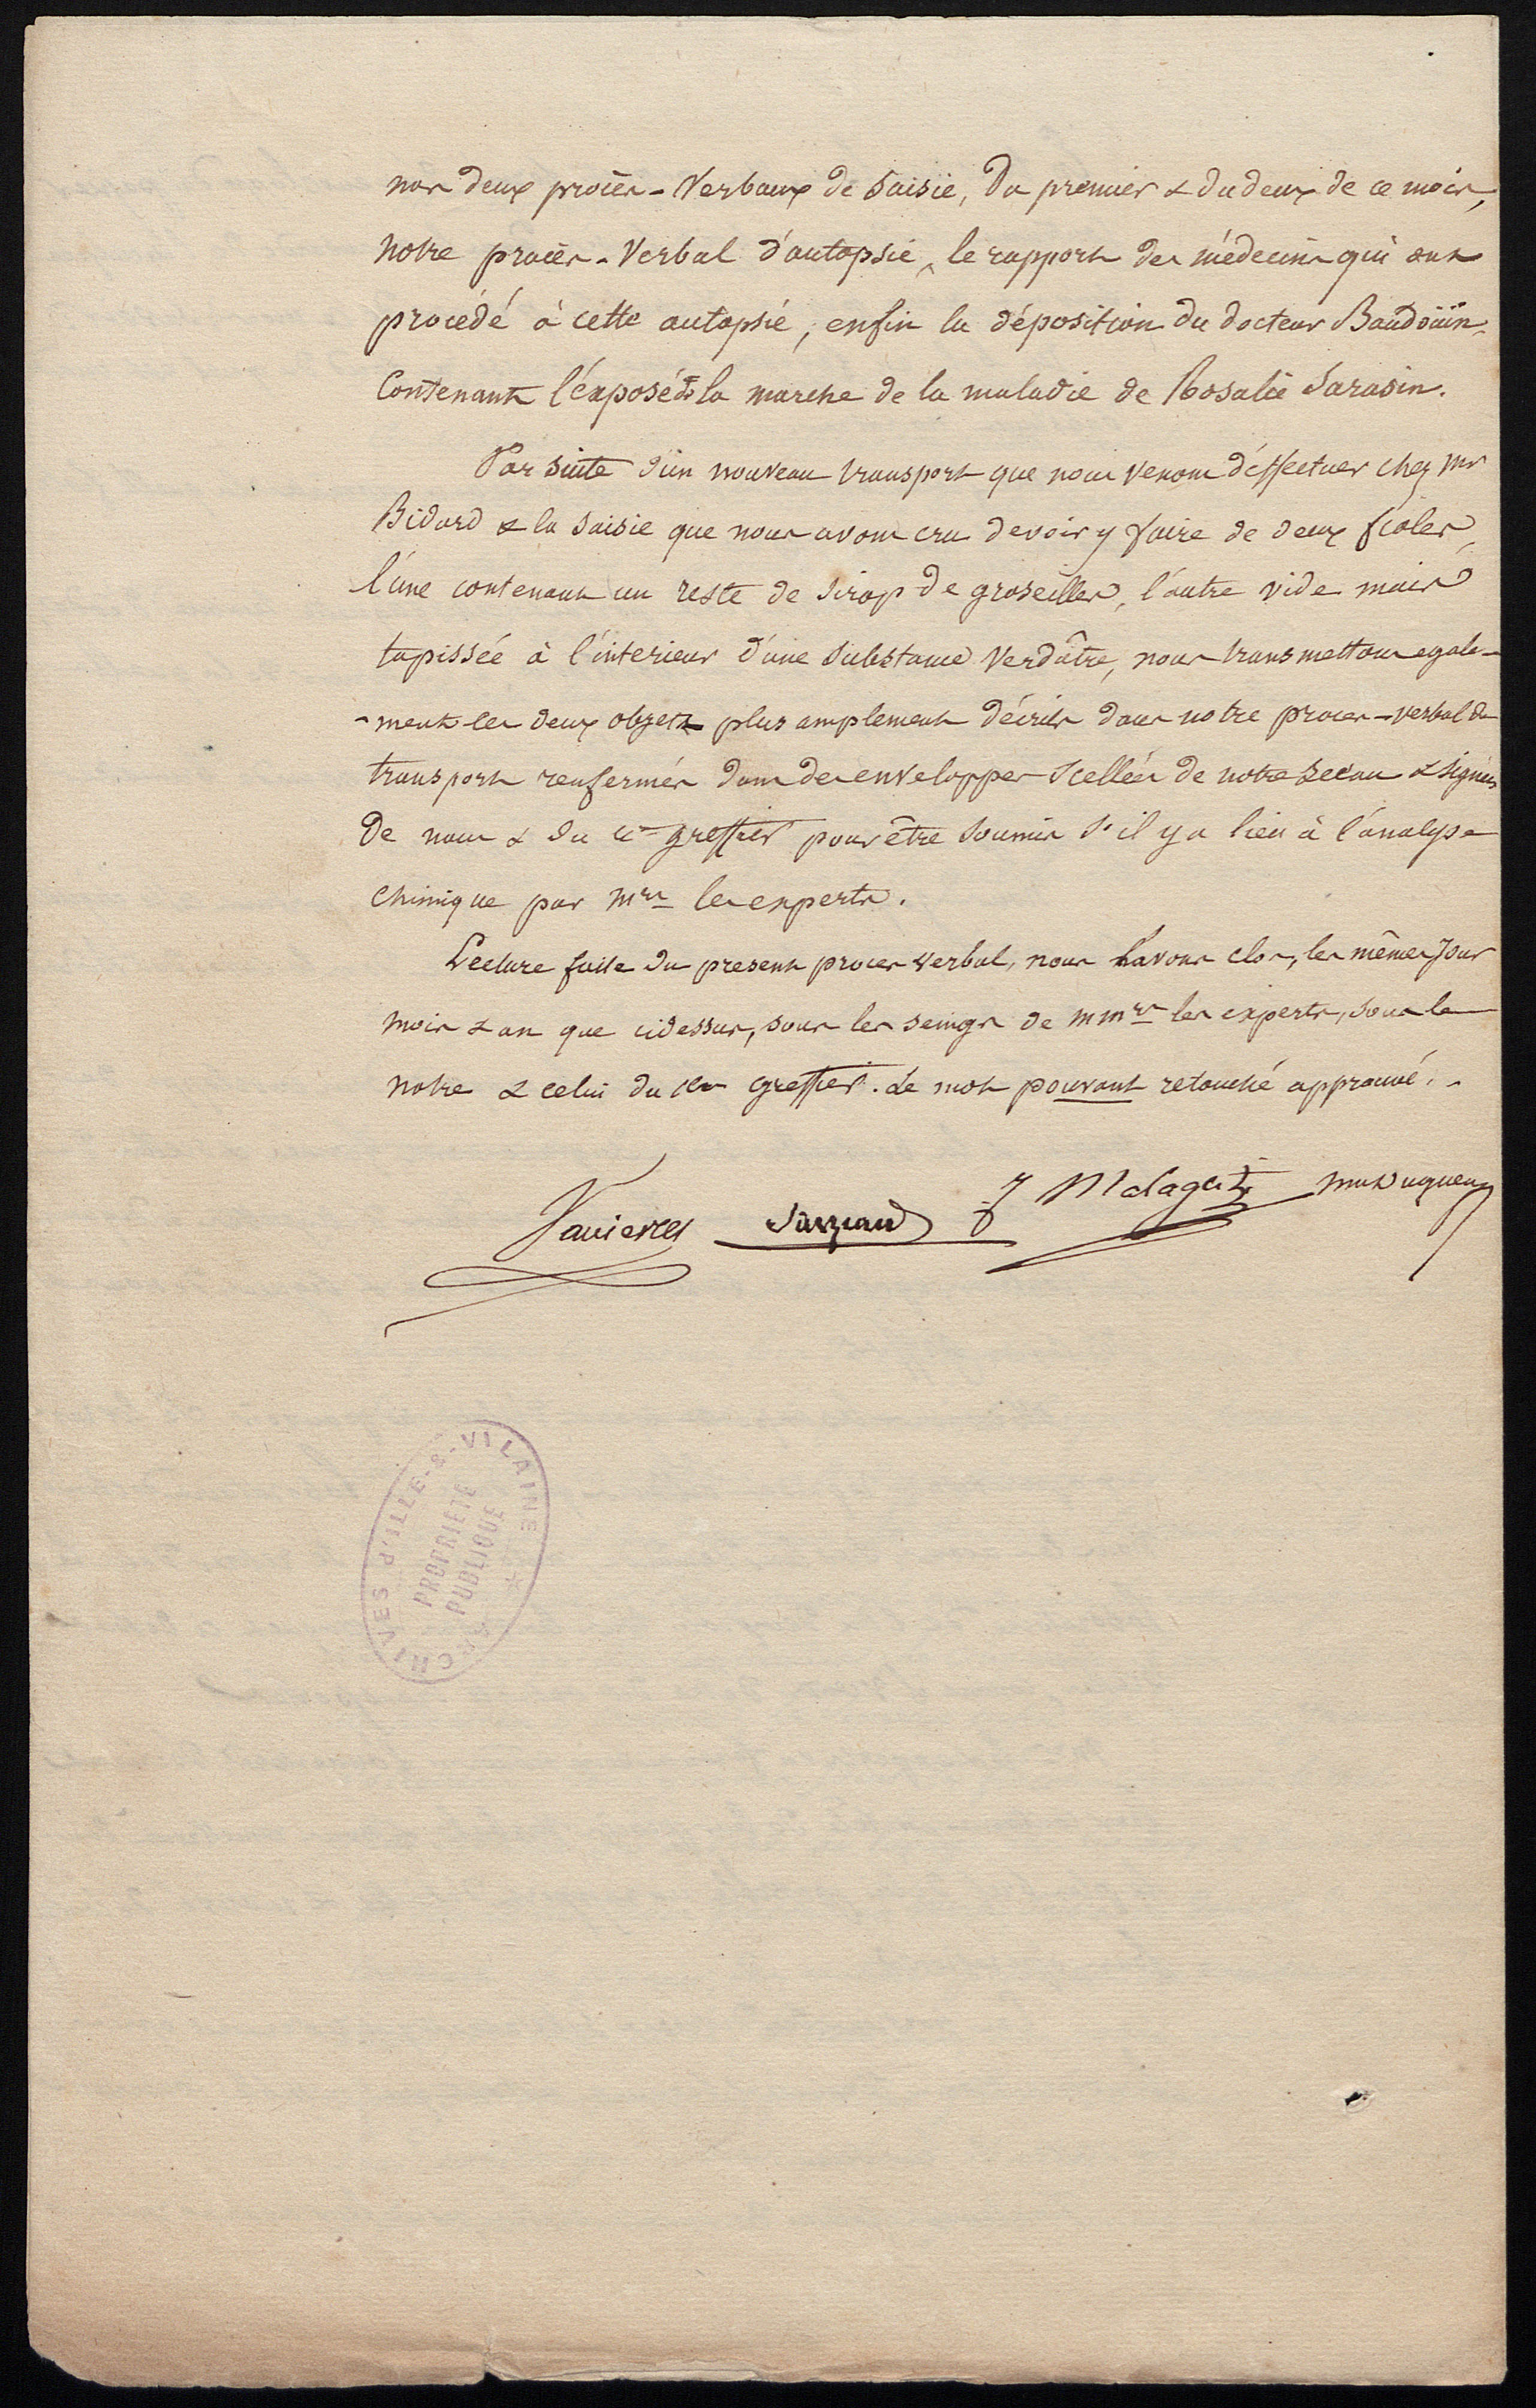 nos deux procès-Verbaux de saisie, du premier & du deux de ce mois,
notre procès-Verbal d'autopsie, le rapport des médecins qui ont
procédé à cette autopsie, enfin la déposition du docteur Baudouin,
Contenant l'exposé de la marche de la maladie de Rosalie Sarasin.
Par suite d'un nouveau transport que nous venons d'effectuer chez Mr
Bidard & la saisie que nous avons cru devoir y faire de deux fioles,
l'une contenant un reste de sirop de groseilles, l'autre vide mais
tapissée à l'interieur d'une substance Verdâtre, nous transmettons egale-
-ment les deux objets plus amplement décrits dans notre proces-verbal de
transport renfermés dans des enveloppes scellées de notre sceau & signées
de nous & du cis greffier pour être soumis s'il y a lieu à l'analyse
chimique par Mrs les experts.
Lecture faite du present proces verbal, nous l'avons clos, les mêmes jour
mois & an que cidessus, sous les seings de MMrs les experts, sous le
notre & celui du cis greffier. Le mot pouvant retouché approuvé.
Malaguti
ARCHIVES D'ILLE-&-VILAINE
PROPRIETE
PUBLIQUE